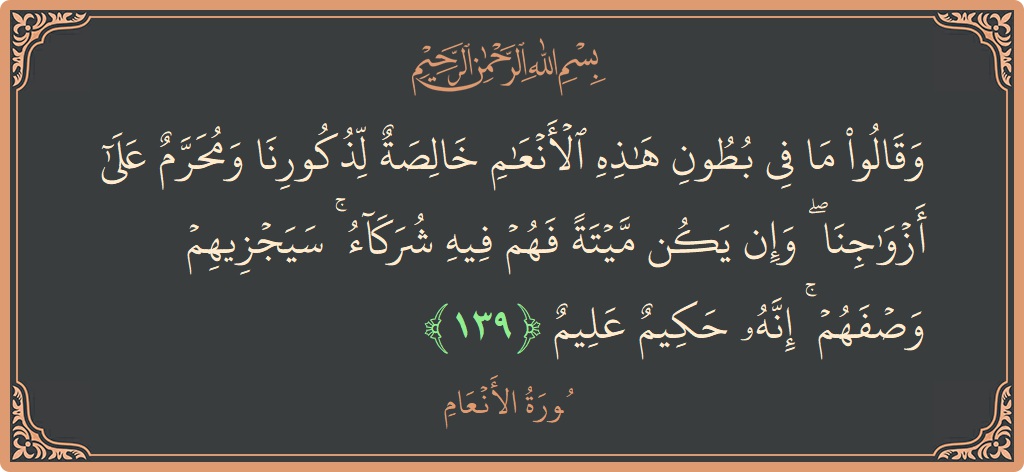 بِسْمِ اللهِ الرَّحْمٰنِ الرَّحِيْمِ
وَقَالُوا۟ مَا فِى بُطُونِ هَـٰذِهِ ٱلْأَنْعَـٰمِ خَالِصَةٌ لِّذُكُورِنَا وَمُحَرَّمٌ عَلَىٰٓ
أَزْوَٰجِنَا ۖ وَإِن يَكُن مَّيْتَةً فَهُمْ فِيهِ شُرَكَآءُ ۚ سَيَجْزِيهِمْ
وَصْفَهُمْ ۚ إِنَّهُۥ حَكِيمٌ عَلِيمٌ ﴿١٣٩﴾
سُورَةُ الأَنْعَامِ